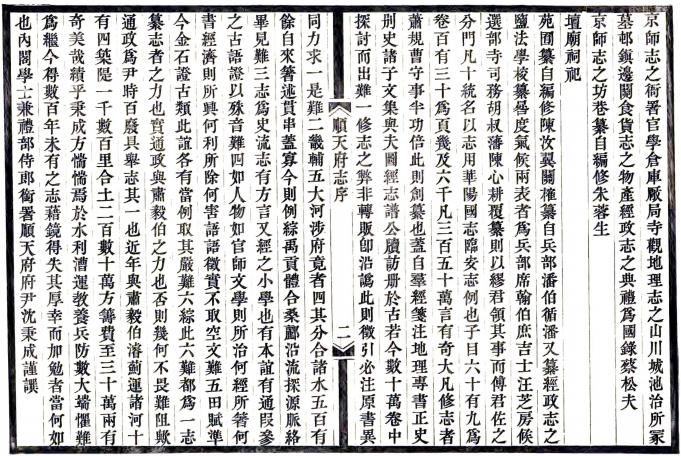 京師志之衙署官學倉庫廠局寺觀地理志之山川城池治所冢
墓邨鎮邊關食貨志之物產經政志之典禮爲國錄蔡松夫
京師志之坊巷纂自編修朱蓉生
壇廟祠祀
苑囿纂自編修陳汝翼關榷纂自兵部潘伯循潘又纂經政志之
鹽法學校纂晷度氣候兩表者爲兵部席翰伯庶吉士汪芝房候
選部寺司務胡叔潘陳心耕覆纂則以繆君領其事而傅君佐之
分門凡十統名以志用華陽國志臨安志例也子目六十有九爲
卷百有三十爲頁幾及六千凡三百五十萬言有奇大凡修志者
蕭規曹守事半功倍此則創纂也蓋自羣經箋注地理專書正史
别史諸子文集輿夫圖經志譜公牘訪冊於古若今數十萬卷中
探討而出難一修志之弊非轉販卽沿譌此則徵引必注原書異
順天府志序
二
同力求一是難二畿輔五大河涉府竟者四其分合諸水五百有
餘自來箸述貫串蓋寡今則例綜禹貢體合桑酈沿流探源脈絡
畢見難三志爲史流志有方言又經之小學也有本誼有通叚參
之古語證以殊音難四如人物如官師文學則所治何經所箸何
書經濟則所興何利所除何害語語徵實不取空文難五田賦準
今金石證古類此誼各有當例取其嚴難六綜此六難都爲一志
纂志者之力也實通政與肅毅伯之力也否則幾何不畏難阻歟
通政爲尹時百廢具舉志其一也近年與肅毅伯濬薊運諸河十
有四築隄一千數百里合土二百數十萬方籌費至三十萬兩有
奇美哉績乎秉成方惴惴焉於水利漕運敎養兵防數大端懼難
爲繼今得數百年未有之志藉鏡得失其厚幸而加勉者當何如
也內閣學士兼禮部侍郎銜署順天府府尹沈秉成謹譔